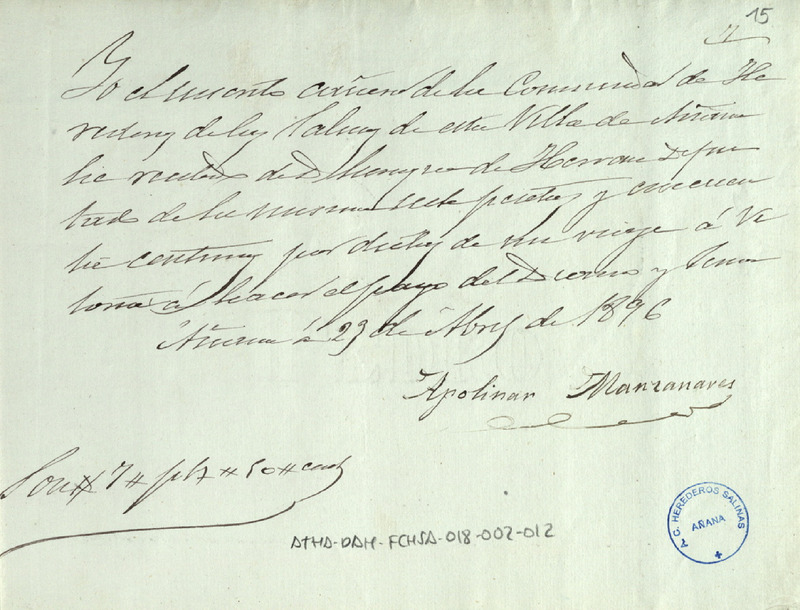 15
7
Yo el susento casero de la Comunidad de He
rederos de las Salinas de esta Villa de Añana
he recibido de D. de Herran Depu
tado de la misma siete pesetas y cincuen
ta centimos por dietas de un viage á Vi
toria á hacer el pago del Diezmo y
Añana á 29 de Abril de 1896
Apolinar Manzanares
Son # 7 # ptz # 50 # cent
ATHA-DAH-FCHSA-018-002-012
C. HEREDEROS SALINAS
AÑANA